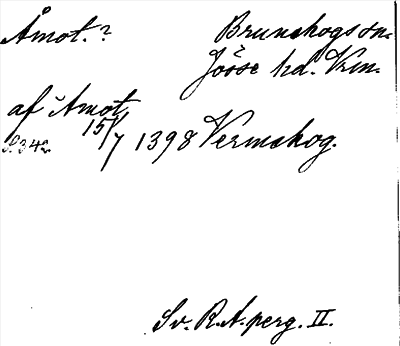 Åmot.? Brunskogs sn.
Jösse hd. Vrm.
af Åmot
S. 342 15/7 1398 Vermskog.
Sv. R.A. perg. II.